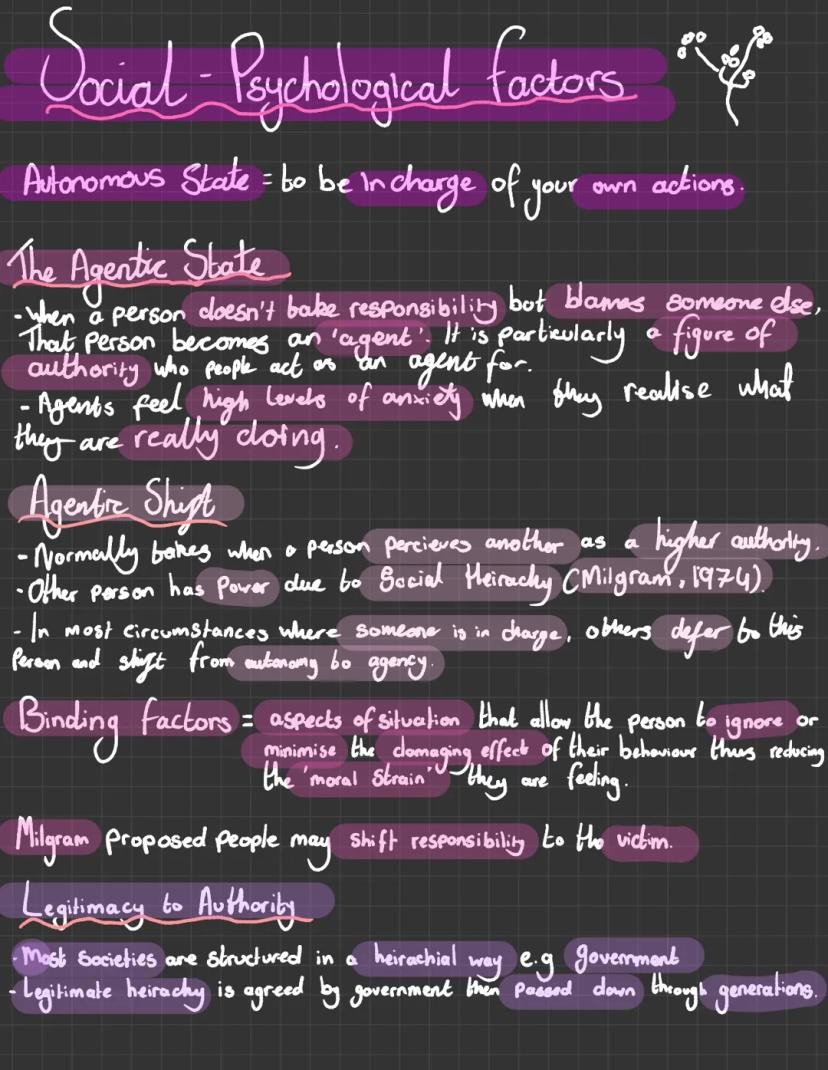 Social - Psychological factors
Autonomous State = to be in charge of your own actions.
The Agentic State
- when a person doesn't take responsibility but blames someone else,
That person becomes an 'agent'. It is particularly a figure of
authority who people act as an agent for.
- Agents feel high levels of anxiety when they realise what
they are really doing.
Agentic Shift
- Normally takes when a person percieves another as a higher authority.
- Other person has Power due to Social Heirachy (Milgram, 1974)
- In most circumstances where someone is in charge, others defer to this
Person and shift from autonomy to agency.
Binding factors = aspects of situation that allow the person to ignore or
minimise the damaging effect of their behaviour thus reducing
the 'moral Strain' they are feeling.
Milgram proposed people may shift responsibility to the victim.
Legitimacy to Authority
- Most societies are structured in a heirachial way e.g government
- Legitimate heirachy is agreed by government then passed down through generations.